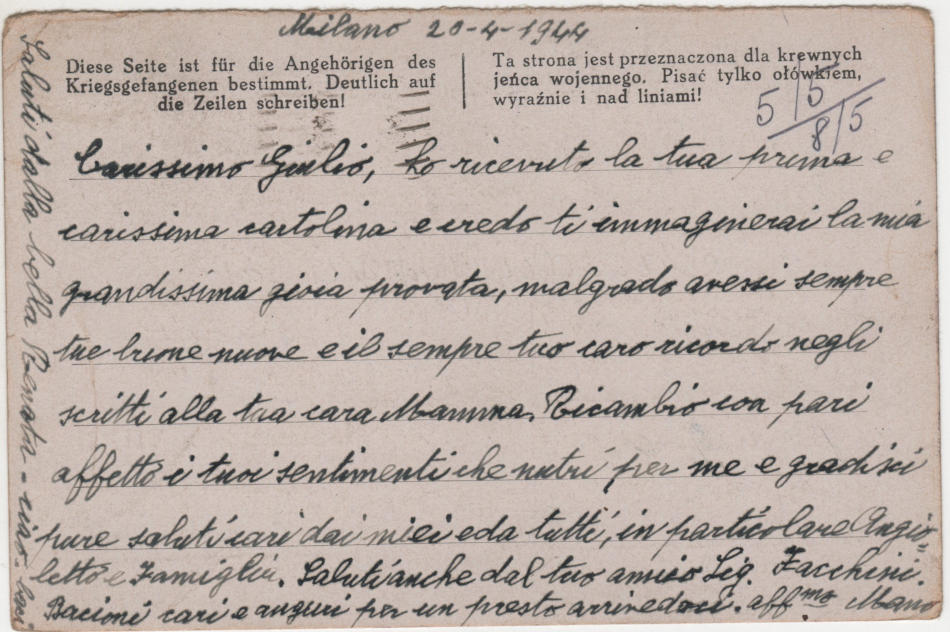 Milano 20-4-1944
Diese Seite ist für die Angehörigen des
Kriegsgefangenen bestimmt. Deutlich auf
die Zeilen schreiben!
Ta strona jest przeznaczona dla krewnych
jeńca wojennego. Pisać tylko ołówkiem,
wyraźnie i nad liniami!
5/5
8/5
Carissimo Giulio, ho ricevuto la tua prima e
carissima cartolina e credo ti immaginerai la mia
grandissima gioia provata, malgrado avessi sempre
tue buone nuove e il sempre tuo caro ricordo negli
scritti alla tua cara Mamma. Ricambio con pari
affetto i tuoi sentimenti che nutri per me e gradisci
pure saluti cari dai miei e da tutti, in particolare Angio=
letto e Famiglia. Saluti anche dal tuo amico Sig. Facchini.
Bacioni cari e auguri per un presto arrivederci. aff.mo Mano
Saluti dalla bella Renata - ciao - baci